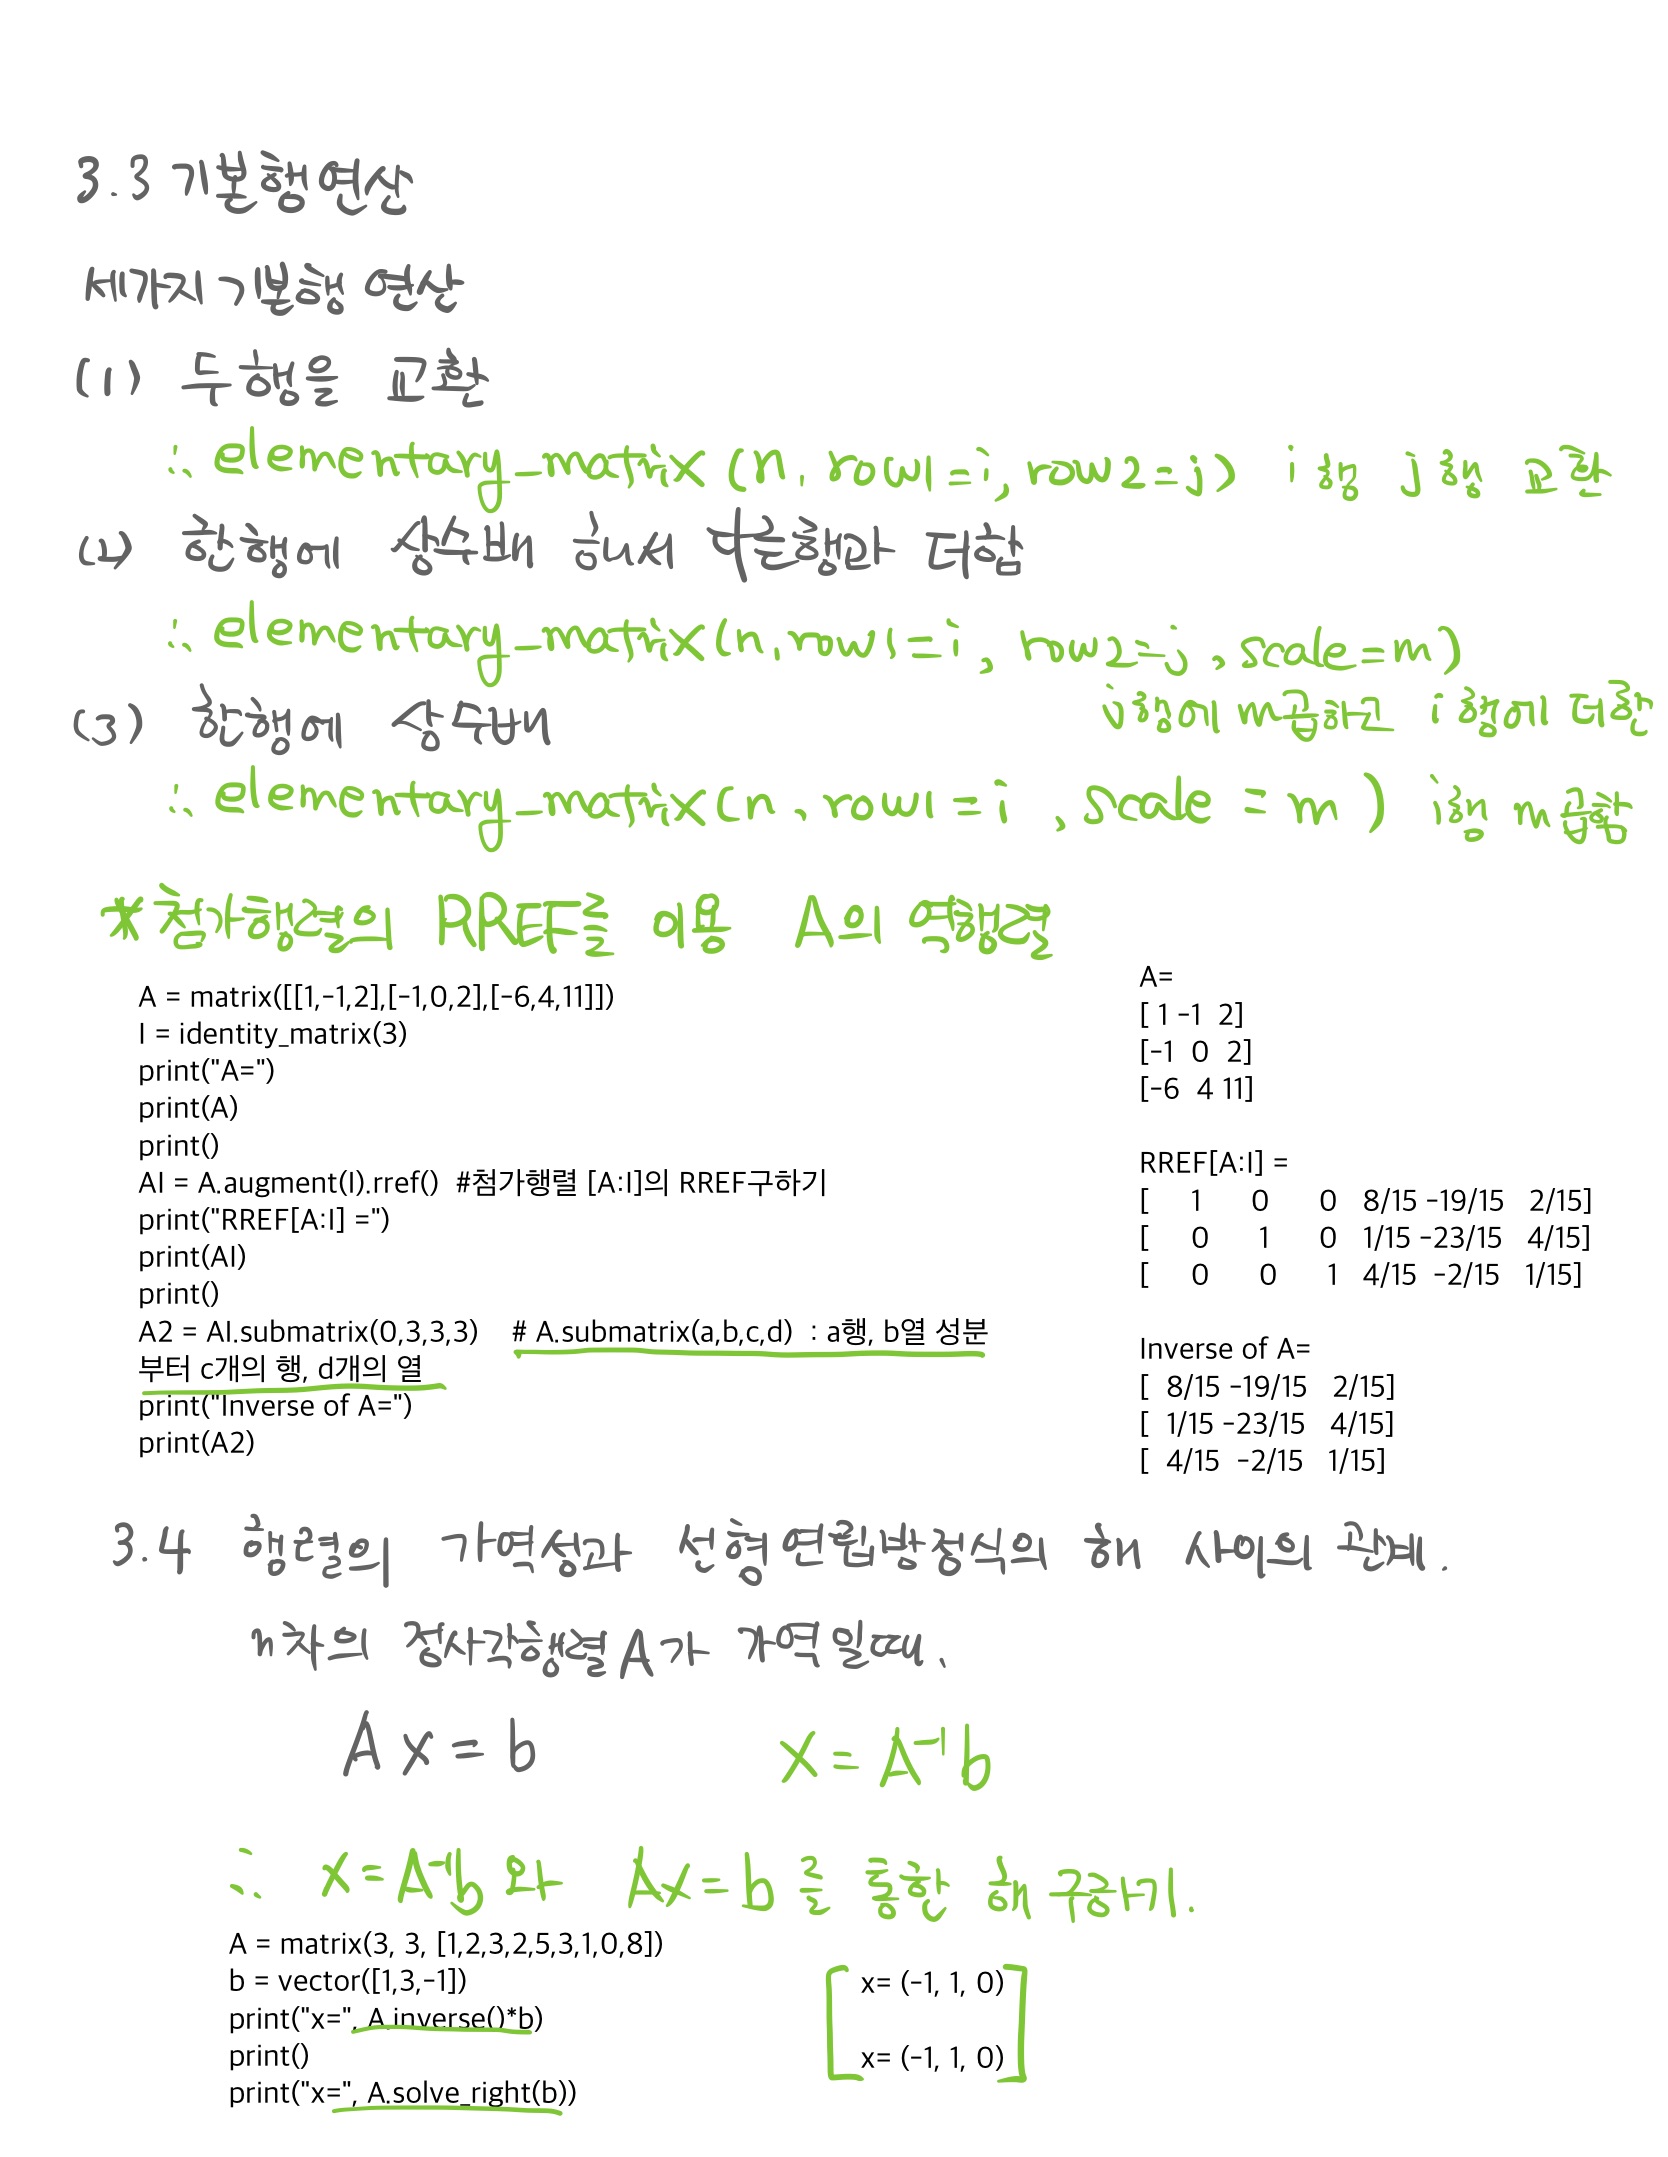 3.3 기본행연산
세가지 기본행 연산
(1) 두행을 교환
∴ elementary_matrix (n, row1=i, row2=j) i행 j행 교환
(2) 한행에 상수배 해서 다른행과 더함
∴ elementary_matrix(n, row1=i, row2=j, scale=m)
j행에 m곱하고 i행에 더한
(3) 한행에 상수배
∴ elementary_matrix(n, row1=i, scale=m) i행 m곱함
*첨가행렬의 RREF를 이용 A의 역행렬
A = matrix([[1,-1,2],[-1,0,2],[-6,4,11]])
I = identity_matrix(3)
print("A=")
print(A)
print()
AI = A.augment(I).rref() #첨가행렬 [A:I]의 RREF구하기
print("RREF[A:I] =")
print(AI)
print()
A2 = AI.submatrix(0,3,3,3) # A.submatrix(a,b,c,d) : a행, b열 성분
부터 c개의 행, d개의 열
print("Inverse of A=")
print(A2)
A=
[ 1 -1 2]
[-1 0 2]
[-6 4 11]
RREF[A:I] =
[ 1 0 0 8/15 -19/15 2/15]
[ 0 1 0 1/15 -23/15 4/15]
[ 0 0 1 4/15 -2/15 1/15]
Inverse of A=
[ 8/15 -19/15 2/15]
[ 1/15 -23/15 4/15]
[ 4/15 -2/15 1/15]
3.4 행렬의 가역성과 선형연립방정식의 해 사이의 관계.
n차의 정사각행렬A가 가역일때,
Ax=b x=A⁻¹b
∴ x=A⁻¹b 와 Ax=b 를 통한 해 구하기.
A = matrix(3, 3, [1,2,3,2,5,3,1,0,8])
b = vector([1,3,-1])
print("x=", A.inverse()*b)
print()
print("x=", A.solve_right(b))
x= (-1, 1, 0)
x= (-1, 1, 0)